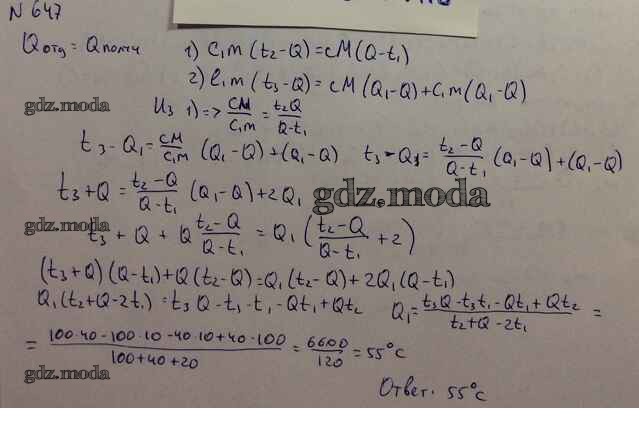 N 647
Qотд = Qполуч 1) C₁m (t₂-Q) = cM(Q-t₁)
2) C₁m (t₃-Q) = cM(Q₁-Q)+C₁m(Q₁-Q)
Из 1)=> CM/C₁m = t₂Q/Q-t₁
gdz.moda
t₃-Q₁= CM/C₁m (Q₁-Q)+(Q₁-Q) t₃-Q₁= t₂-Q/Q-t₁ (Q₁-Q)+(Q₁-Q)
t₃+Q = t₂-Q/Q-t₁ (Q₁-Q)+2Q₁
gdz.moda
gdz.moda
t₃ + Q + Q t₂-Q/Q-t₁ = Q₁ (t₂-Q/Q-t₁ +2)
(t₃+Q)(Q-t₁)+Q(t₂-Q)=Q₁(t₂-Q)+2Q₁(Q-t₁)
Q₁(t₂+Q-2t₁)=t₃Q-t₁-t₁-Qt₁+Qt₂ Q₁= t₃Q-t₃t₁-Qt₁+Qt₂/t₂+Q-2t₁ =
= 100·40-100·10-40·10+40·100/100+40+20 = 6600/120 = 55°C
gdz.moda
Ответ. 55°C